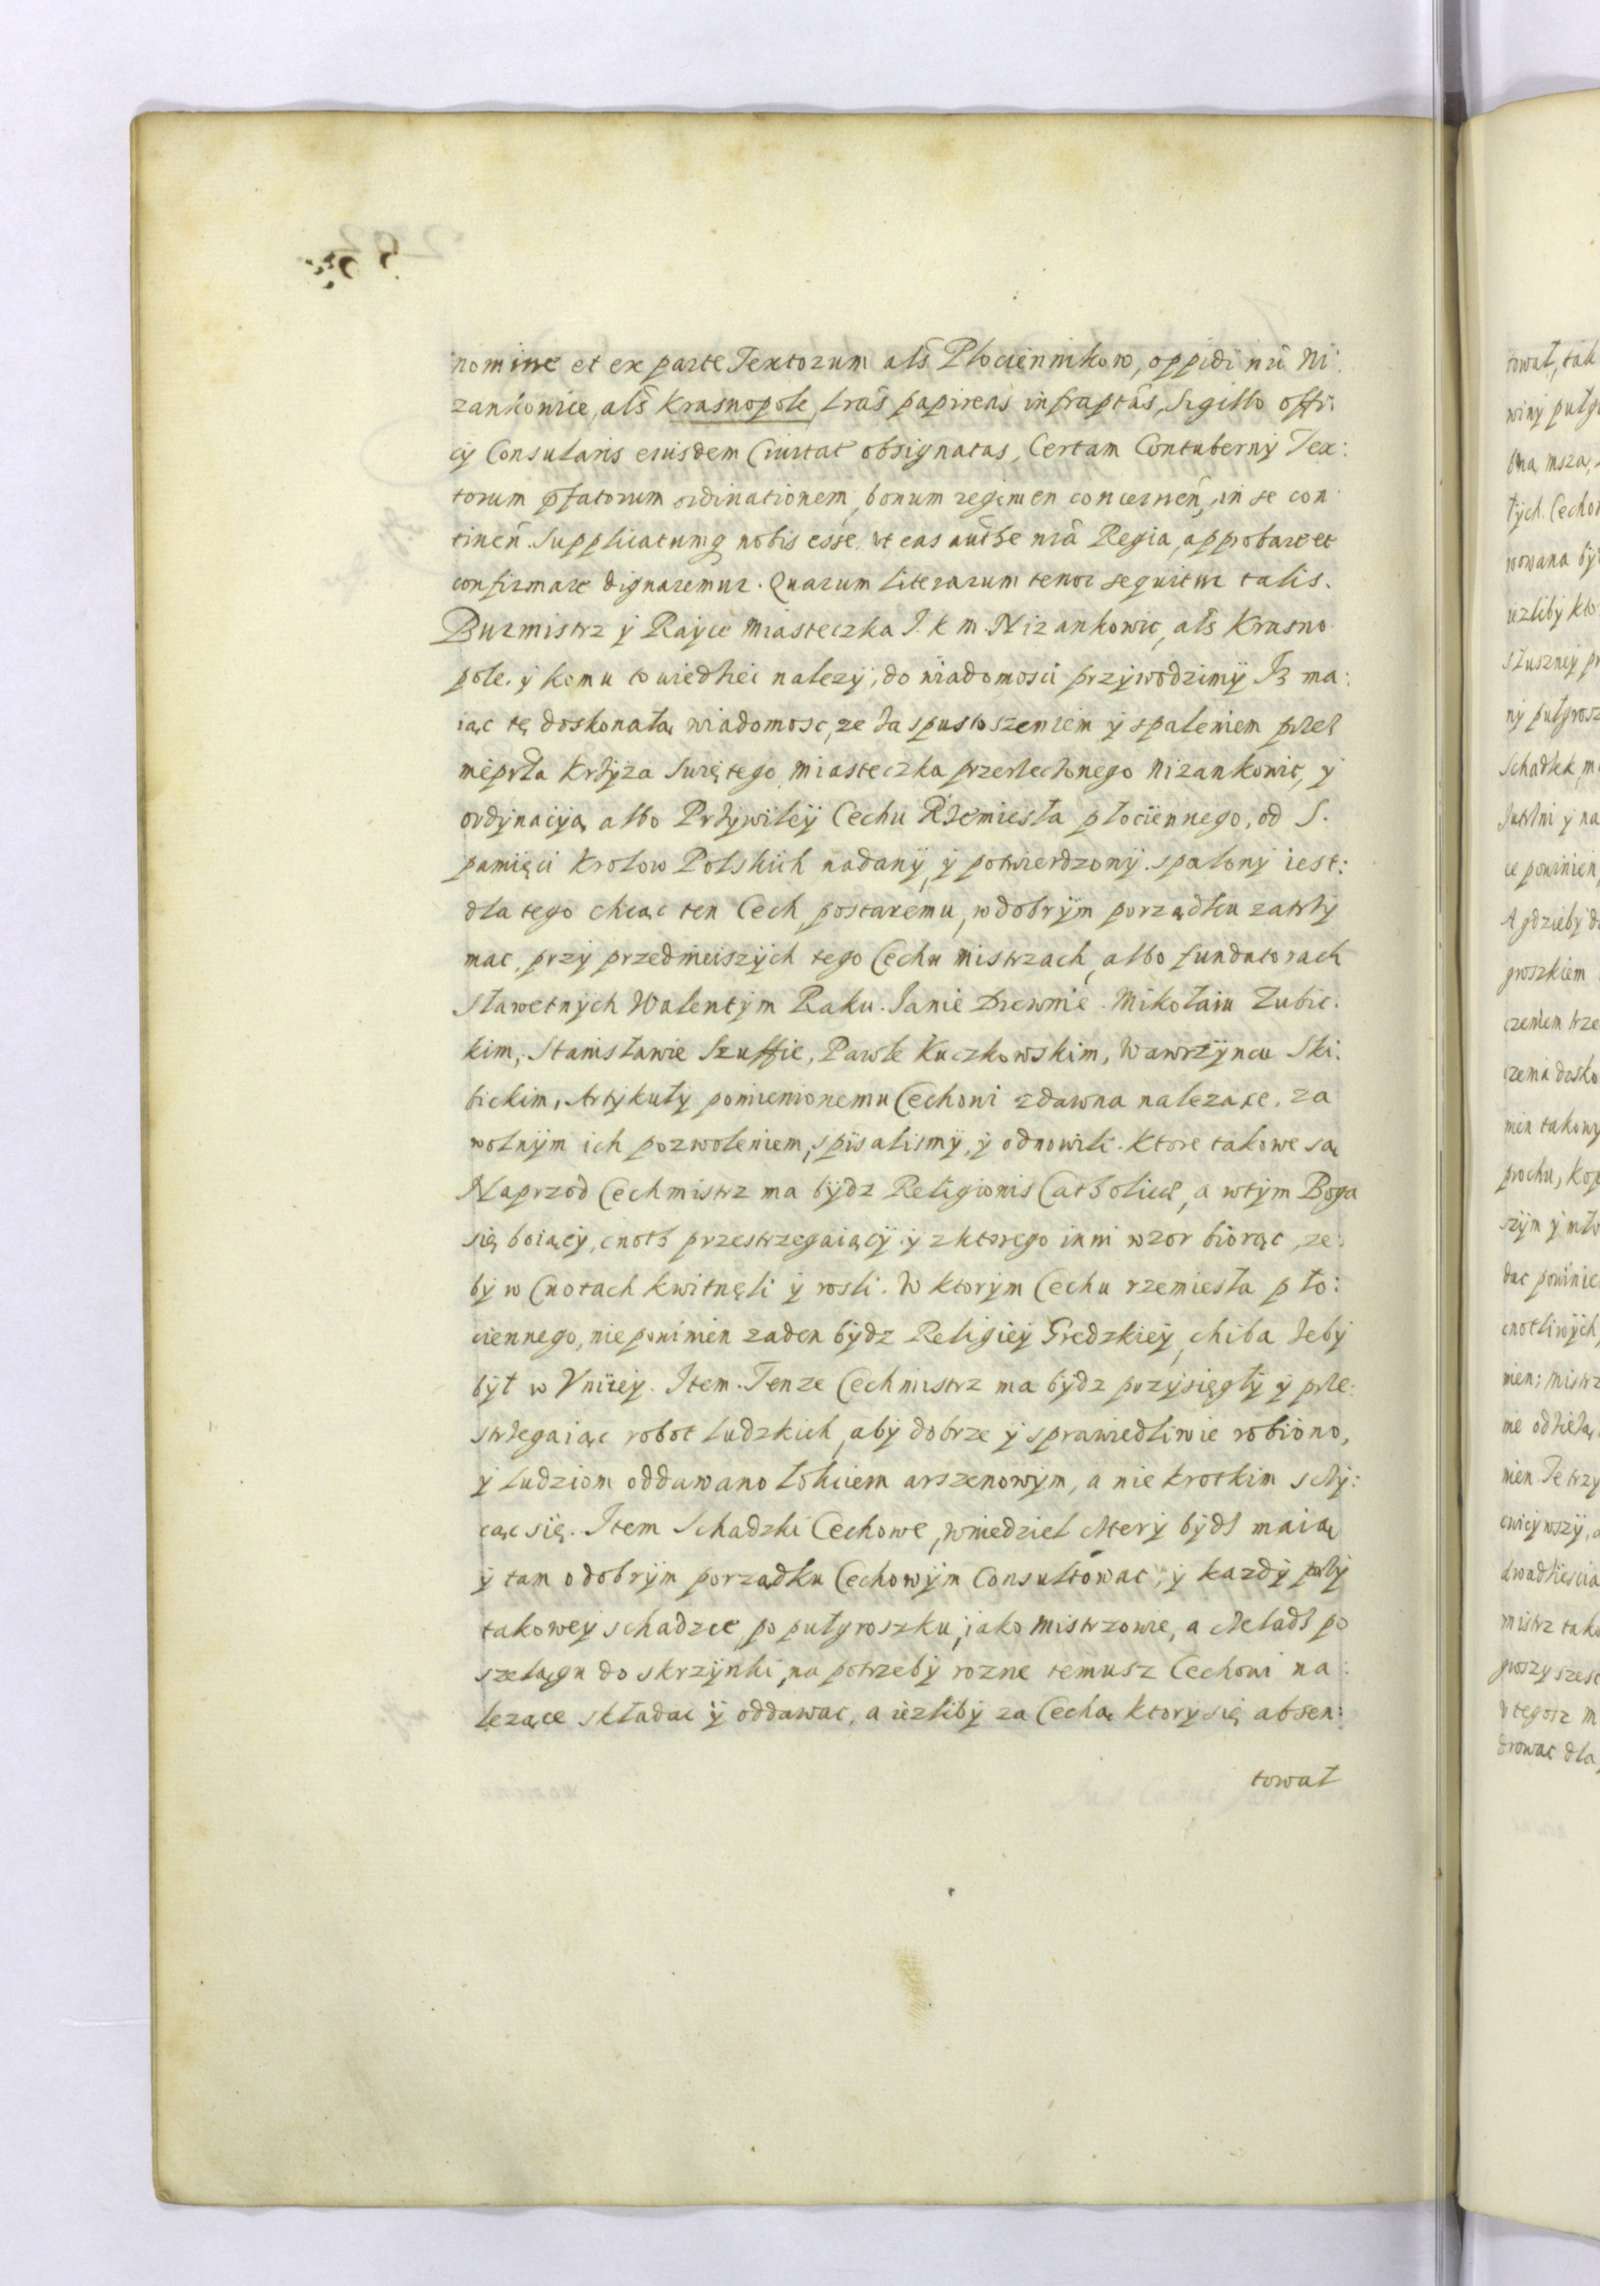 nomine et ex parte Textorum als Płociennikow, oppidi nri Ni:
zankowice, als Krasnopole, lras papireas infraptas, Sigillo offi:
cy Consularis eiusdem Ciuitat obsignatas, Certam Contuberny Tex:
torum pfatorum ordinationem, bonum regimen concernen, in se con
tinen. Supplicatumq nobis esse, ut eas authe nra Regia, approbare et
confirmare dignaremur. Quarum literarum tenor sequitur talis.
Burmistrz ÿ Raÿce Miasteczka J. K. M. Nizankowic, als Krasno
pole. ÿ komu to wiedziec nalezÿ, do wiadomosci przÿwodzimÿ Iz ma:
iąc tę doskonałą wiadomosc, ze za spustoszeniem ÿ spaleniem przez
nieprła Krzÿza Swiętego, miasteczka przerzeczonego Nizankowic, ÿ
ordÿnacÿą albo Przÿwileÿ Cechu Rzemiesła płociennego, od S.
pamięci Krolow Polskich nadanÿ, ÿ potwierdzonÿ spalonÿ iest:
dla tego chcąc ten Cech postaremu, w dobrÿm porządku zatrzÿ
mac, przÿ przednieiszÿch tego Cechu Mistrzach, albo fundatorach
Sławetnÿch Walentÿm Raku. Janie Drewnie. Mikołaiu Zubic:
kim, Stanisławie Szuffie, Pawle Kuczkowskim, Wawrzÿncu Ski:
bickim, Artÿkułÿ pomienionemu Cechowi zdawna nalezące, za
wolnÿm ich pozwoleniem, spisalismÿ, ÿ odnowili. Ktore takowe są
Naprzod Cechmistrz ma bÿdz Religionis Catholicæ, a wtÿm Boga
się boiącÿ, cnoth przestrzegaiącÿ ÿ zktorego inni wzor biorąc, ze:
bÿ w Cnotach kwitnęli ÿ rosli. W ktorÿm Cechu rzemiesła pło:
ciennego, niepowinien zaden bÿdz Religieÿ Gredzkieÿ, chiba zebÿ
bÿł w Vnieÿ. Item. Tenze Cechmistrz ma bÿdz przÿsięgłÿ ÿ prze:
strzegaiąc robot ludzkich, abÿ dobrze ÿ sprawiedliwie robiono,
ÿ ludziom oddawano łokciem arszenowÿm, a nie krotkim schÿ:
cąc się. Item Schadzki Cechowe, w niedziel czterÿ bÿdz maią
ÿ tam o dobrÿm porządku Cechowÿm Consultowac, ÿ kazdÿ przÿ
takoweÿ schadzce, po pułgroszku, iako mistrzowie, a czeladz po
szelągu do skrzÿnki, na potrzebÿ rozne temusz Cechowi na:
lezące składac ÿ oddawac, a iezlibÿ za Cechą ktorÿ się absen:
tował